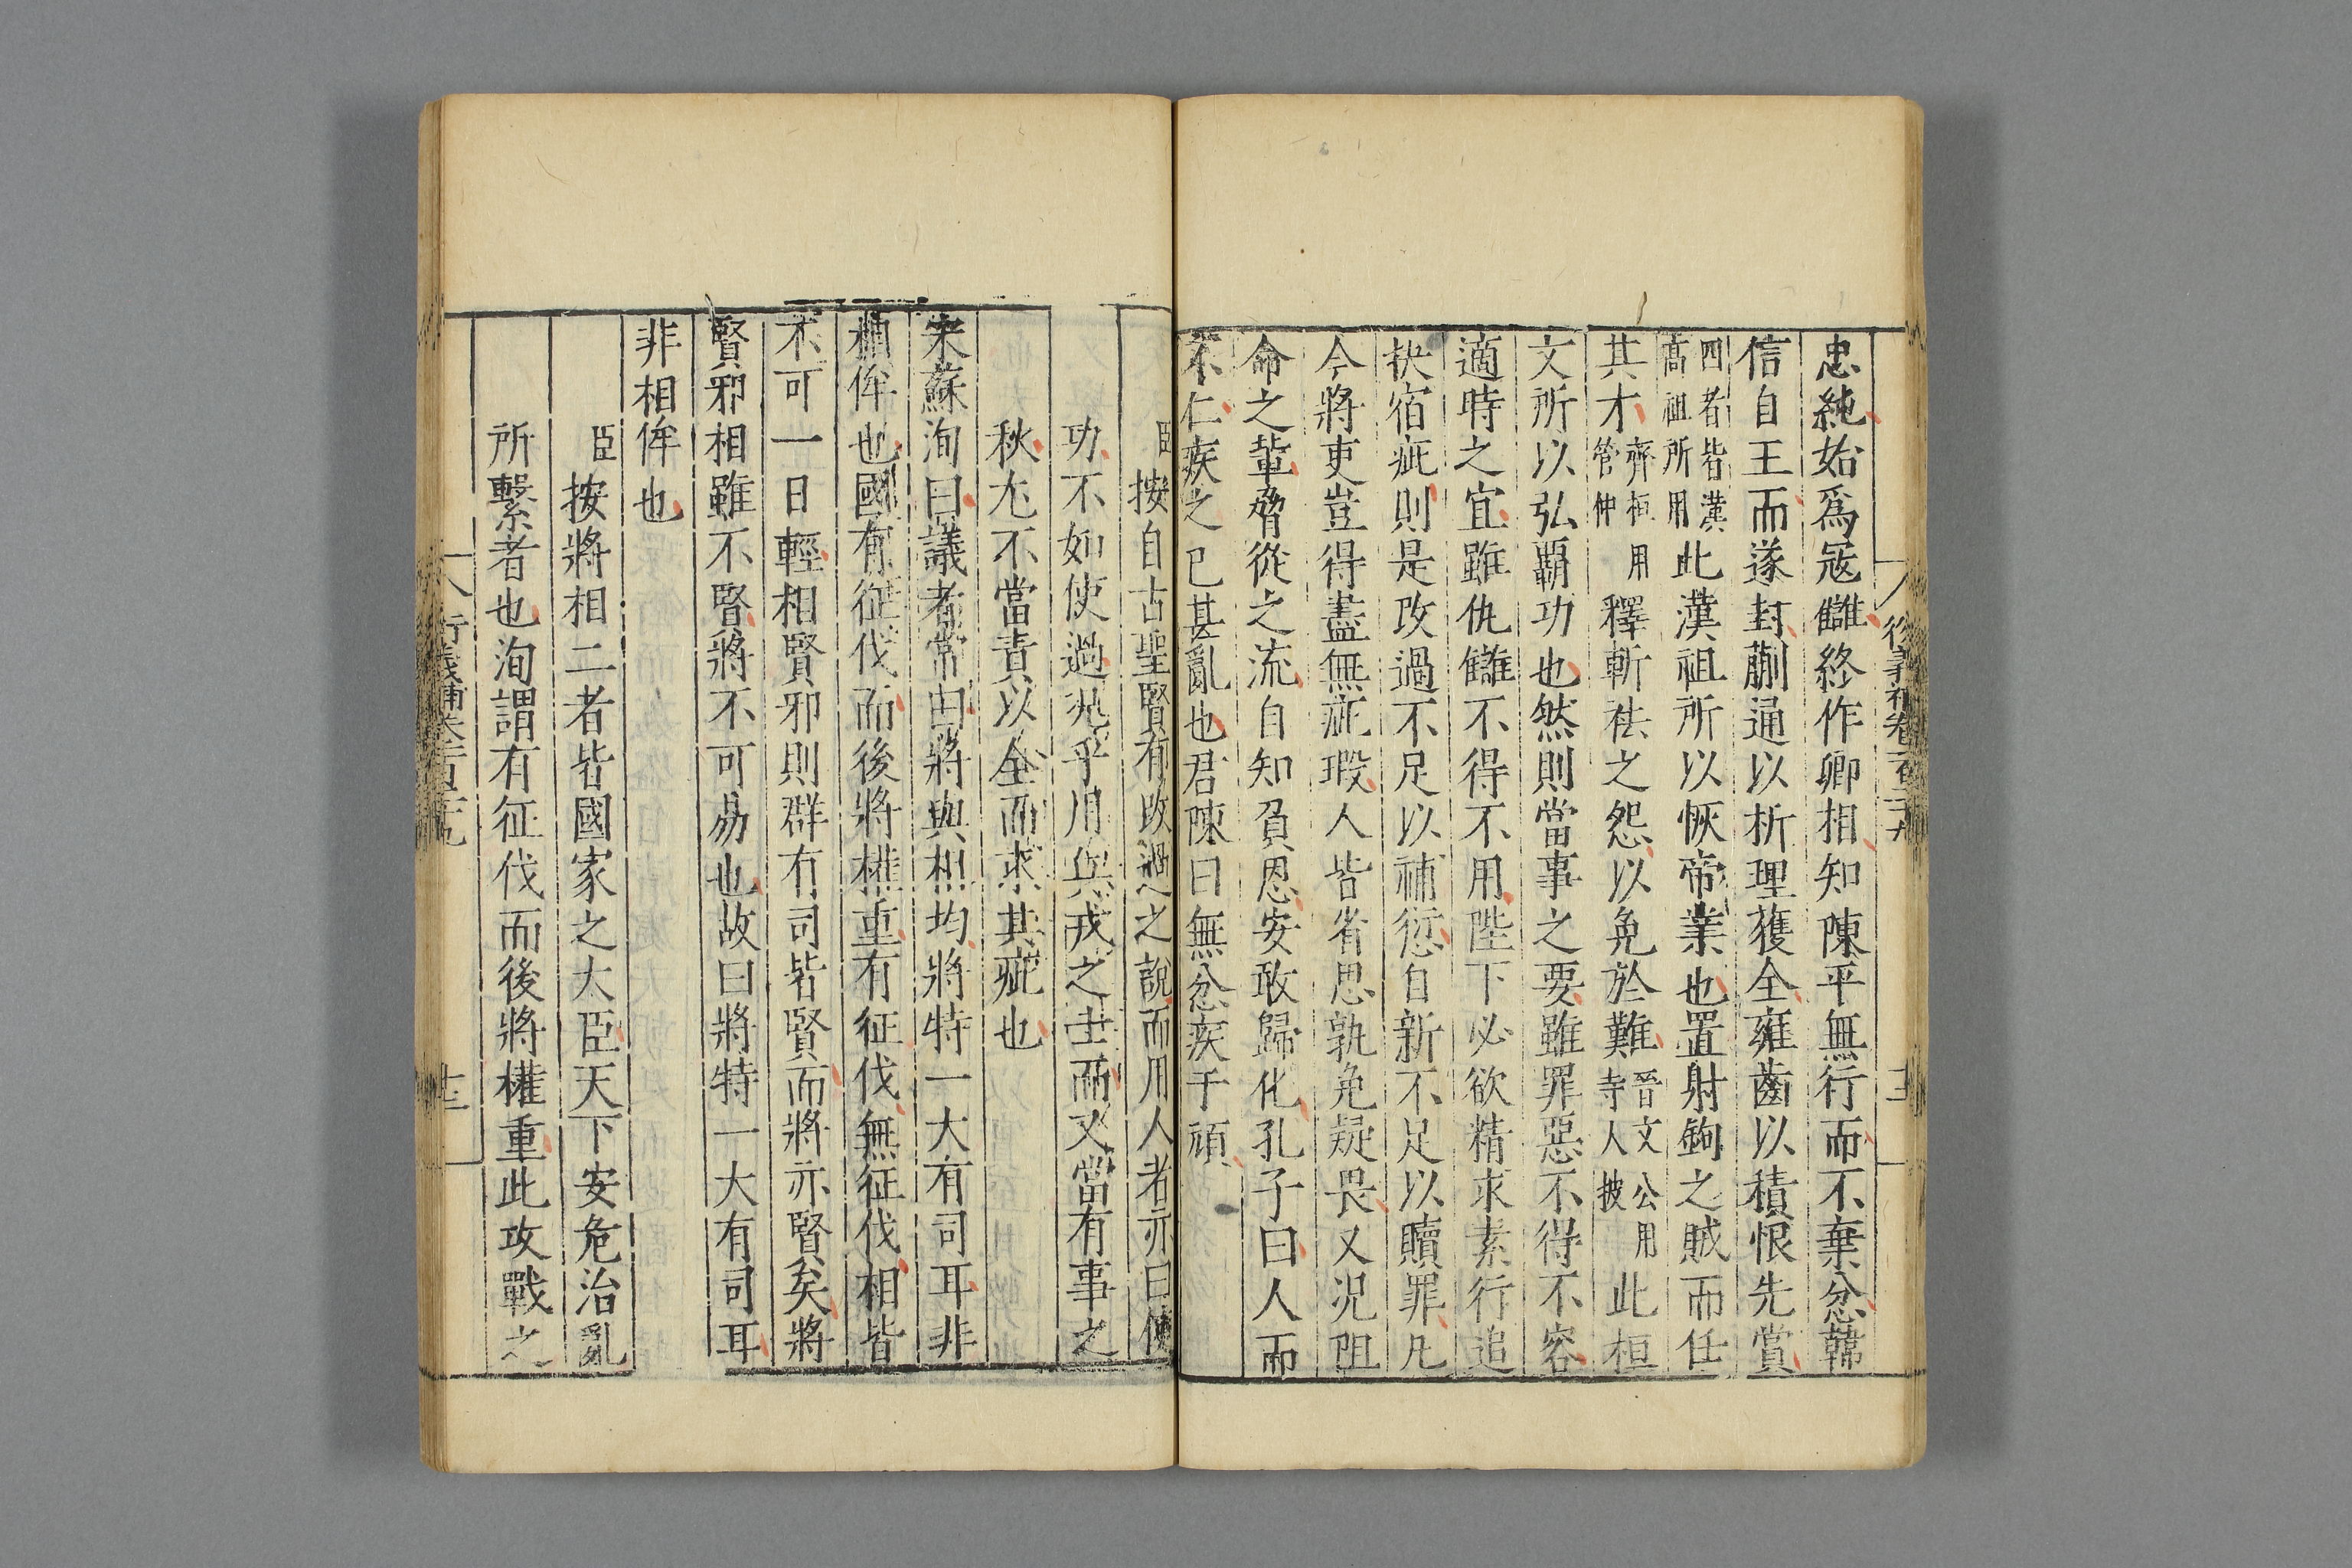 忠純始爲寇讎終作卿相知陳平無行而不棄忿韓
信自王而遂封蒯通以析理獲全雍齒以積恨先賞
四者皆漢高祖所用此漢祖所以恢帝業也置射鉤之賊而任
其才齊桓用管仲釋斬袪之怨以免於難晉文公用寺人披此桓
文所以弘覇功也然則當事之要雖罪惡不得不容
適時之宜雖仇讎不得不用陛下必欲精求素行追
抉宿疵則是改過不足以補愆自新不足以贖罪凡
今將吏豈得盡無疵瑕人皆省思孰免疑畏又況阻
命之輩脅從之流自知負恩安敢歸化孔子曰人而
不仁疾之已甚亂也君陳曰無忿疾于頑
臣按自古聖賢有改過之說而用人者亦曰使
功不如使過況乎用兵戎之士而又當有事之
秋尤不當責以全而求其疵也
宋蘇洵曰議者常曰將與相均將特一大有司耳非
相侔也國有征伐而後將權重有征伐無征伐相皆
不可一日輕相賢邪則群有司皆賢而將亦賢矣將
賢邪相雖不賢將不可易也故曰將特一大有司耳
非相侔也
臣按將相二者皆國家之大臣天下安危治亂
所繫者也洵謂有征伐而後將權重此攻戰之